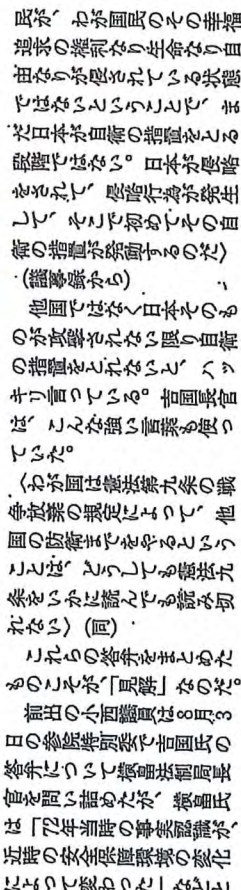 民が、わが国民のその幸福
追求の権利なり生命なり自
由なりが侵されている状態
ではないということで、ま
だ日本が自衛の措置をとる
段階ではない。日本が侵略
をされて、侵略行為が発生
して、そこで初めてその自
衛の措置が発動するのだ〉
(議事録から)
他国ではなく日本そのも
のが攻撃されない限り自衛
の措置をとれないと、ハッ
キリ言っている。吉国長官
は、こんな強い言葉も使っ
ていた。
〈わが国は憲法第九条の戦
争放棄の規定によって、他
国の防衛までをやるという
ことは、どうしても憲法九
条をいかに読んでも読み切
れない〉(同)
これらの答弁をまとめた
ものこそが、「見解」なのだ。
前出の小西議員は8月3
日の参院特別委で吉国氏の
答弁について横畠法制局長
官を問い詰めたが、横畠氏
は「72年当時の事実認識が、
近時の安全保障環境の変化
によって変わった」などと